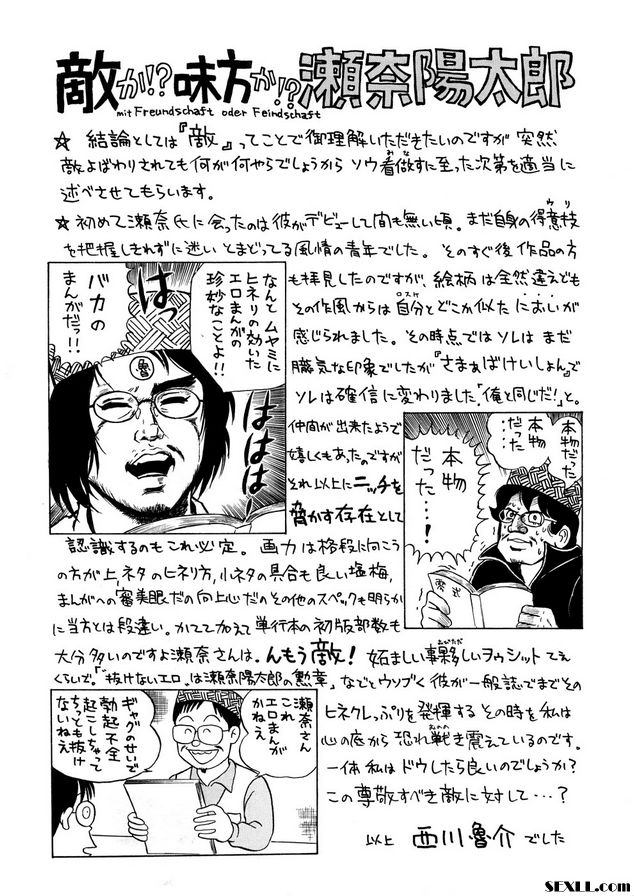 敵か!?味方か!?瀬奈陽太郎
mit Freundschaft oder Feindschaft
☆ 結論としては『敵』ってことで御理解いただきたいのですが 突然
敵よばわりされても何が何やらでしょうから ソウ看做すに至った次第を適当に
述べさせてもらいます。
☆ 初めて瀬奈氏に会ったのは彼がデビューして間も無い頃。まだ自身の得意技
を把握しきれずに迷い とまどってる風情の青年でした。そのすぐ後 作品の方
も拝見したのですが、絵柄は全然違えども
その作風からは自分とどこか似た においが
感じられました。その時点では ソレは まだ
朧気な印象でしたが『さまぁばけいしょん』で
ソレは確信に変わりました「俺と同じだ!」と。
なんと ムヤミに
ヒネリの効いた
エロまんがの
珍妙なことよ!!
はっ
バカの
まんがだっ!!
魯
ははは
仲間が出来たようで
嬉しくもあったのですが
それ以上にニッチを
脅かす存在として
本物だった…
本物だった…
本物
だった…!
認識するのもこれ必定。画力は格段に向こう
の方が上、ネタのヒネリ方、小ネタの具合も良い塩梅、
まんがへの審美眼だの向上心だのその他のスペックも明らか
に当方とは段違い。かてて加えて単行本の初版部数も
大分多いのですよ瀬奈さんは。んもう敵! 妬ましい事夥しいヲゥシットてえ
くらいで。「"抜けないエロ"は瀬奈陽太郎の勲章」などとウソブく彼が一般誌でまでその
ヒネクレっぷりを発揮するその時を私は
心の底から恐れ戦き震えているのです。
一体 私は ドウしたら良いのでしょうか?
この尊敬すべき敵に対して…?
瀬奈さん
これ
エロまんが
かねえ
ギャグのせいで
勃起不全
起こしちゃって
ちっとも抜け
ないねえ
以上 西川魯介 でした
SEXLL.com